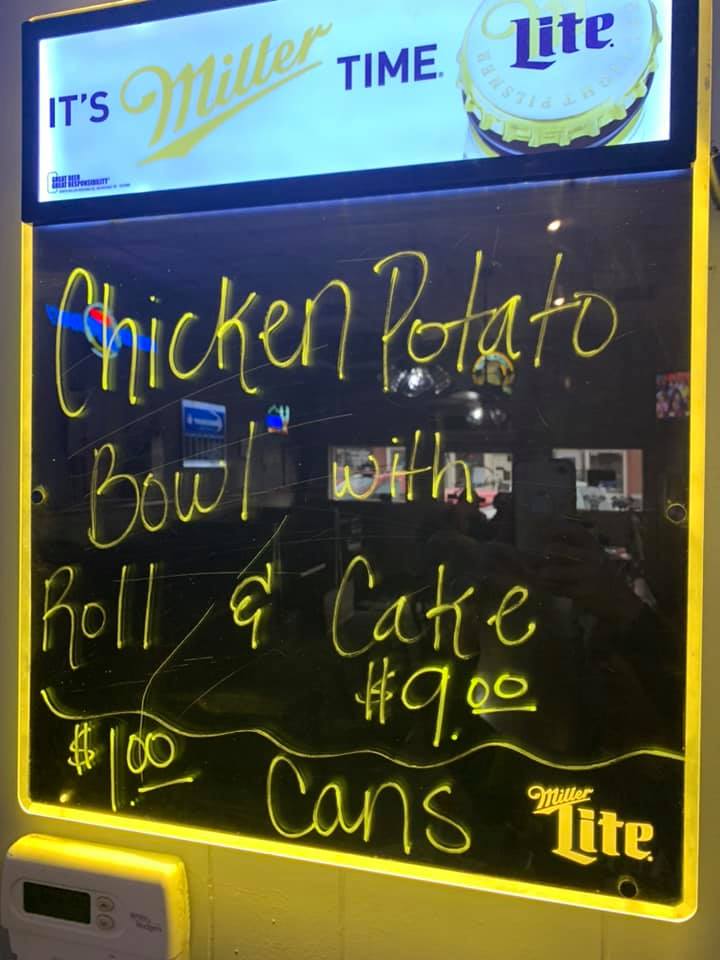 IT'S Miller TIME.
Lite
LIGHT PILSNER
GREAT BEER
GREAT RESPONSIBILITY
Chicken Potato
Bowl with
Roll & Cake
$9.00
$1.00
Cans
Miller
Lite